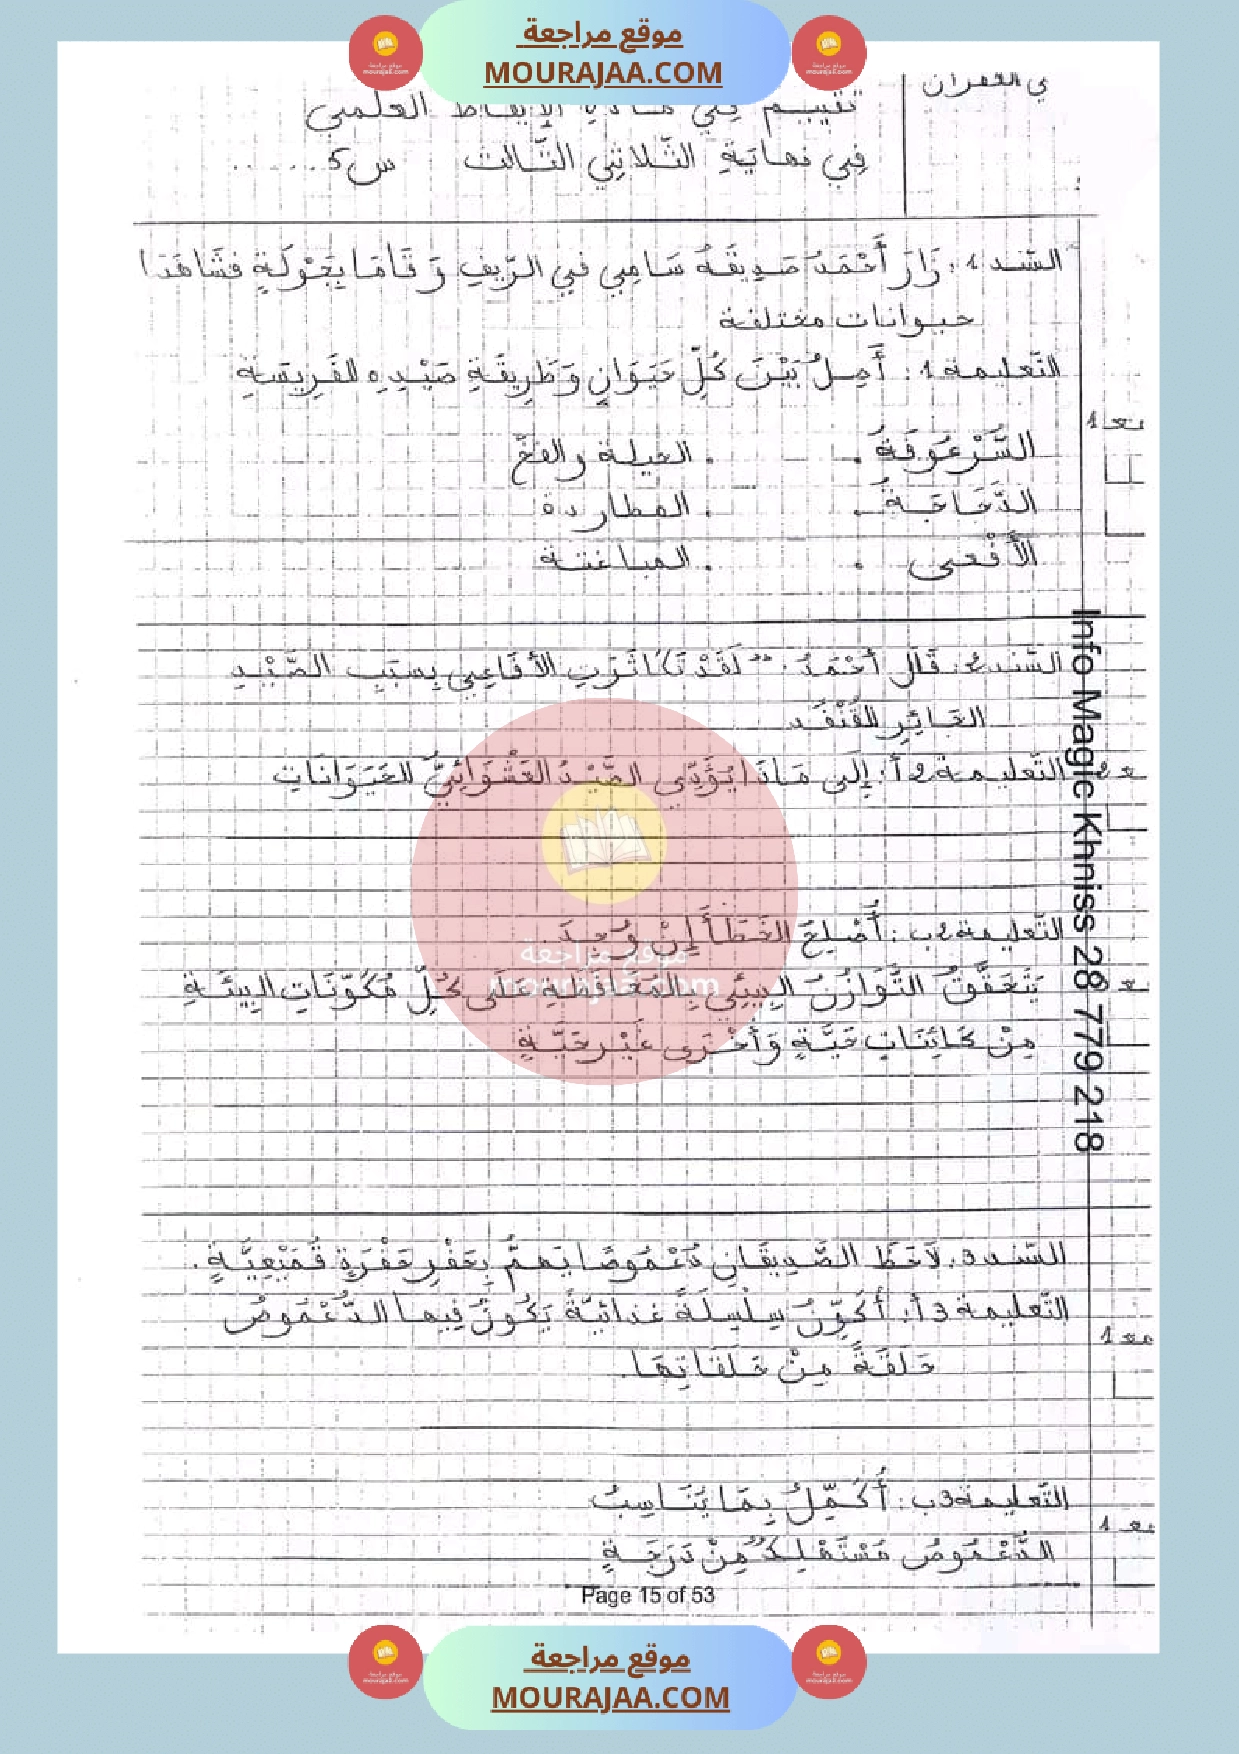 موقع مراجعة
MOURAJAA.COM
تقييم في مادة الإيقاظ العلمي
في نهاية الثّلاثي الثّالث س5 ......
السّند 1: زَارَ أَحْمَدُ صَدِيقَهُ سَامِي فِي الرِّيفِ وَ قَامَا بِجَوْلَةٍ فشَاهَدَا
حيوانات مختلفة
التّعليمة 1: أَصِلُ بَيْنَ كُلِّ حَيَوَانٍ وَطَرِيقَةِ صَيْدِهِ لفَرِيسَتِهِ
مع 1
السُّرْعُوفَةُ . . الحيلة والفخّ
الدَّجَاجَةُ . . المطاردة
الأَفْعَى . . المباغتة
السّند 2: قَالَ أَحْمَدُ: " لَقَدْ تَكَاثَرَتِ الأَفَاعِي بِسَبَبِ الصَّيْدِ
الجَائِرِ للقُنْفُد
التّعليمة 2 أ: إِلَى مَاذَا يُؤَدِّي الصَّيْدُ العَشْوَائِيُّ للحَيَوَانَاتِ
التّعليمة 2 ب: أُصْلِحُ الخَطَأَ إِنْ وُجِدَ
يَتَحَقَّقُ التَّوَازُنُ البِيئِي بِالمُحَافَظَةِ عَلَى كُلِّ مُكَوّنَاتِ البِيئَةِ
مِنْ كَائِنَاتٍ حَيَّةٍ وَأُخْرَى غَيْر حَيَّةٍ
السّند 3: لاَحَظَ الصَّدِيقَانِ دُعْمُوصًا يَهُمُّ بِحَفْرِ حُفْرَةٍ قُمَيْعِيَّةٍ.
التّعليمة 3 أ: أُكَوِّنُ سِلْسِلَةً غذائيّةً يَكُونُ فِيهَا الدُّعْمُوصُ
حَلَقَةً مِنْ حَلَقَاتِهَا.
مع 1
التّعليمة 3 ب: أُكَمِّلُ بِمَا يُنَاسِبُ
مع 1
الدُّعْمُوصُ مُسْتَهْلِكٌ مِنْ دَرَجَةٍ
Info Magic Khniss 28 779 218
موقع مراجعة
mourajaa.com
Page 15 of 53
موقع مراجعة
MOURAJAA.COM